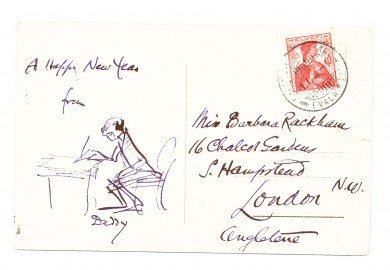 A Happy New Year
from
Daddy
HELVETIA
(VALAIS)
Miss Barbara Rackham
16 Chalcot Gardens
S. Hampstead
London N.W.
Angleterre